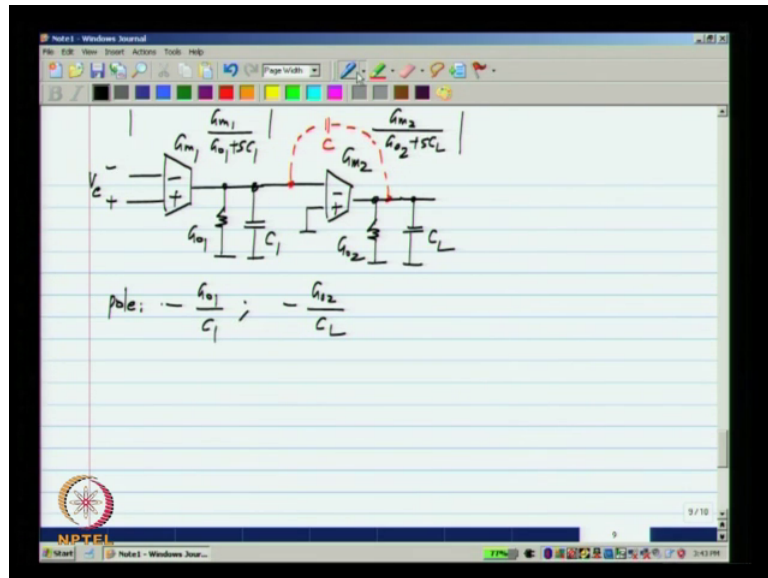 Note1 - Windows Journal
File Edit View Insert Actions Tools Help
Page Width
B I
Gm1 / Go1+SC1
Gm2 / Go2+SCL
Gm1
C
Gm2
Ve - +
- +
- +
Go1
C1
Go2
CL
pole: - Go1/C1 ; - Go2/CL
9/10
NPTEL
9
Start
Note1 - Windows Jour...
77%
3:43 PM